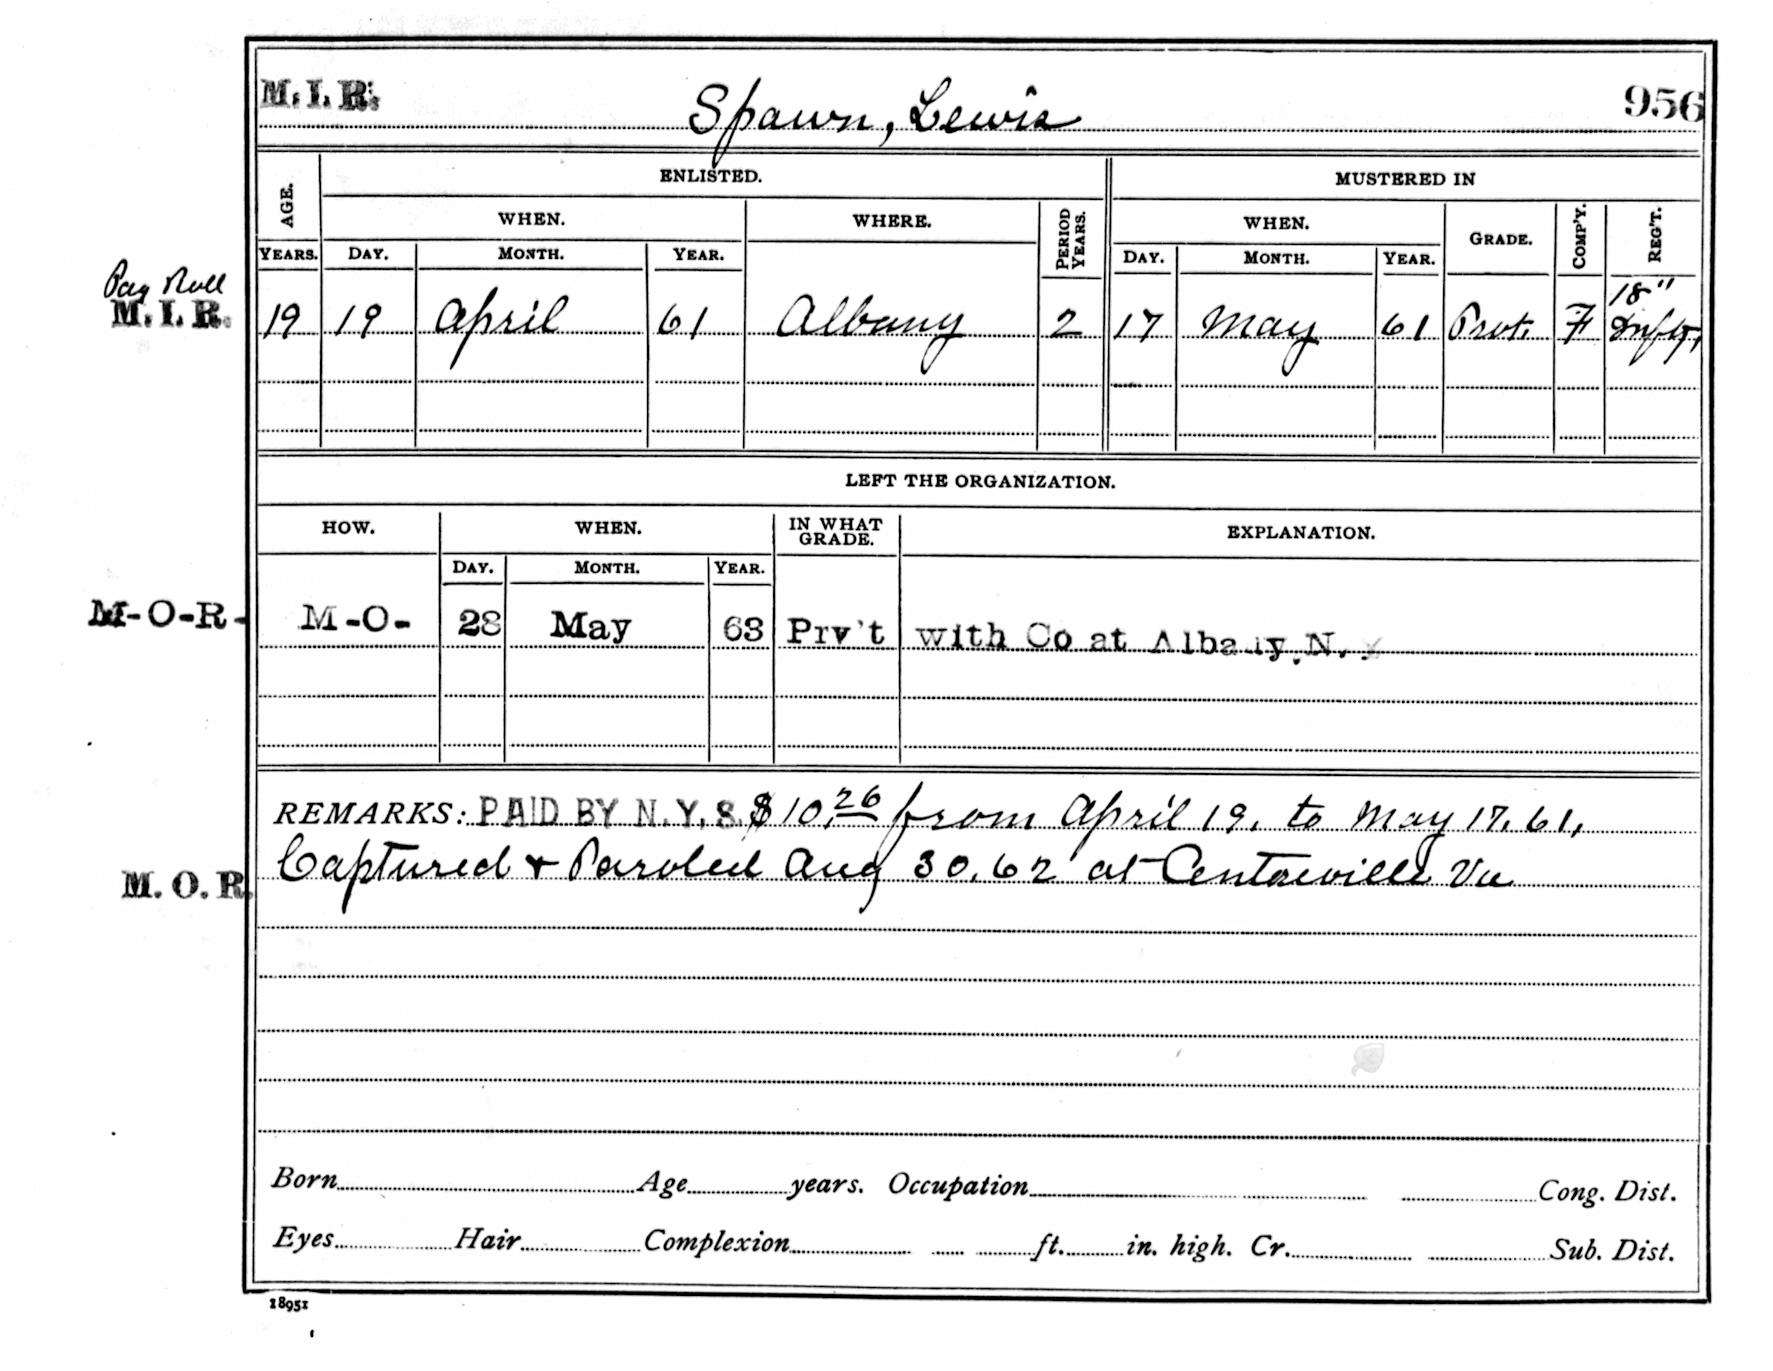 M. I. R. Spawn, Lewis 956
AGE. ENLISTED. MUSTERED IN
WHEN. WHERE. PERIOD YEARS. WHEN. GRADE. COMP'Y. REG'T.
YEARS. DAY. MONTH. YEAR. DAY. MONTH. YEAR.
Pay Roll 18"
M. I. R. 19 19 April 61 Albany 2 17 May 61 Prvt. F Infty,
LEFT THE ORGANIZATION.
HOW. WHEN. IN WHAT GRADE. EXPLANATION.
DAY. MONTH. YEAR.
M-O-R- M-O- 28 May 63 Prv't with Co at Albany, N. Y
REMARKS: PAID BY N.Y.S. $10.26 from April 19. to May 17. 61,
M. O. R. Captured & Paroled Aug 30. 62 at Centreville Va
Born Age years. Occupation Cong. Dist.
Eyes Hair Complexion ft. in. high. Cr. Sub. Dist.
18951